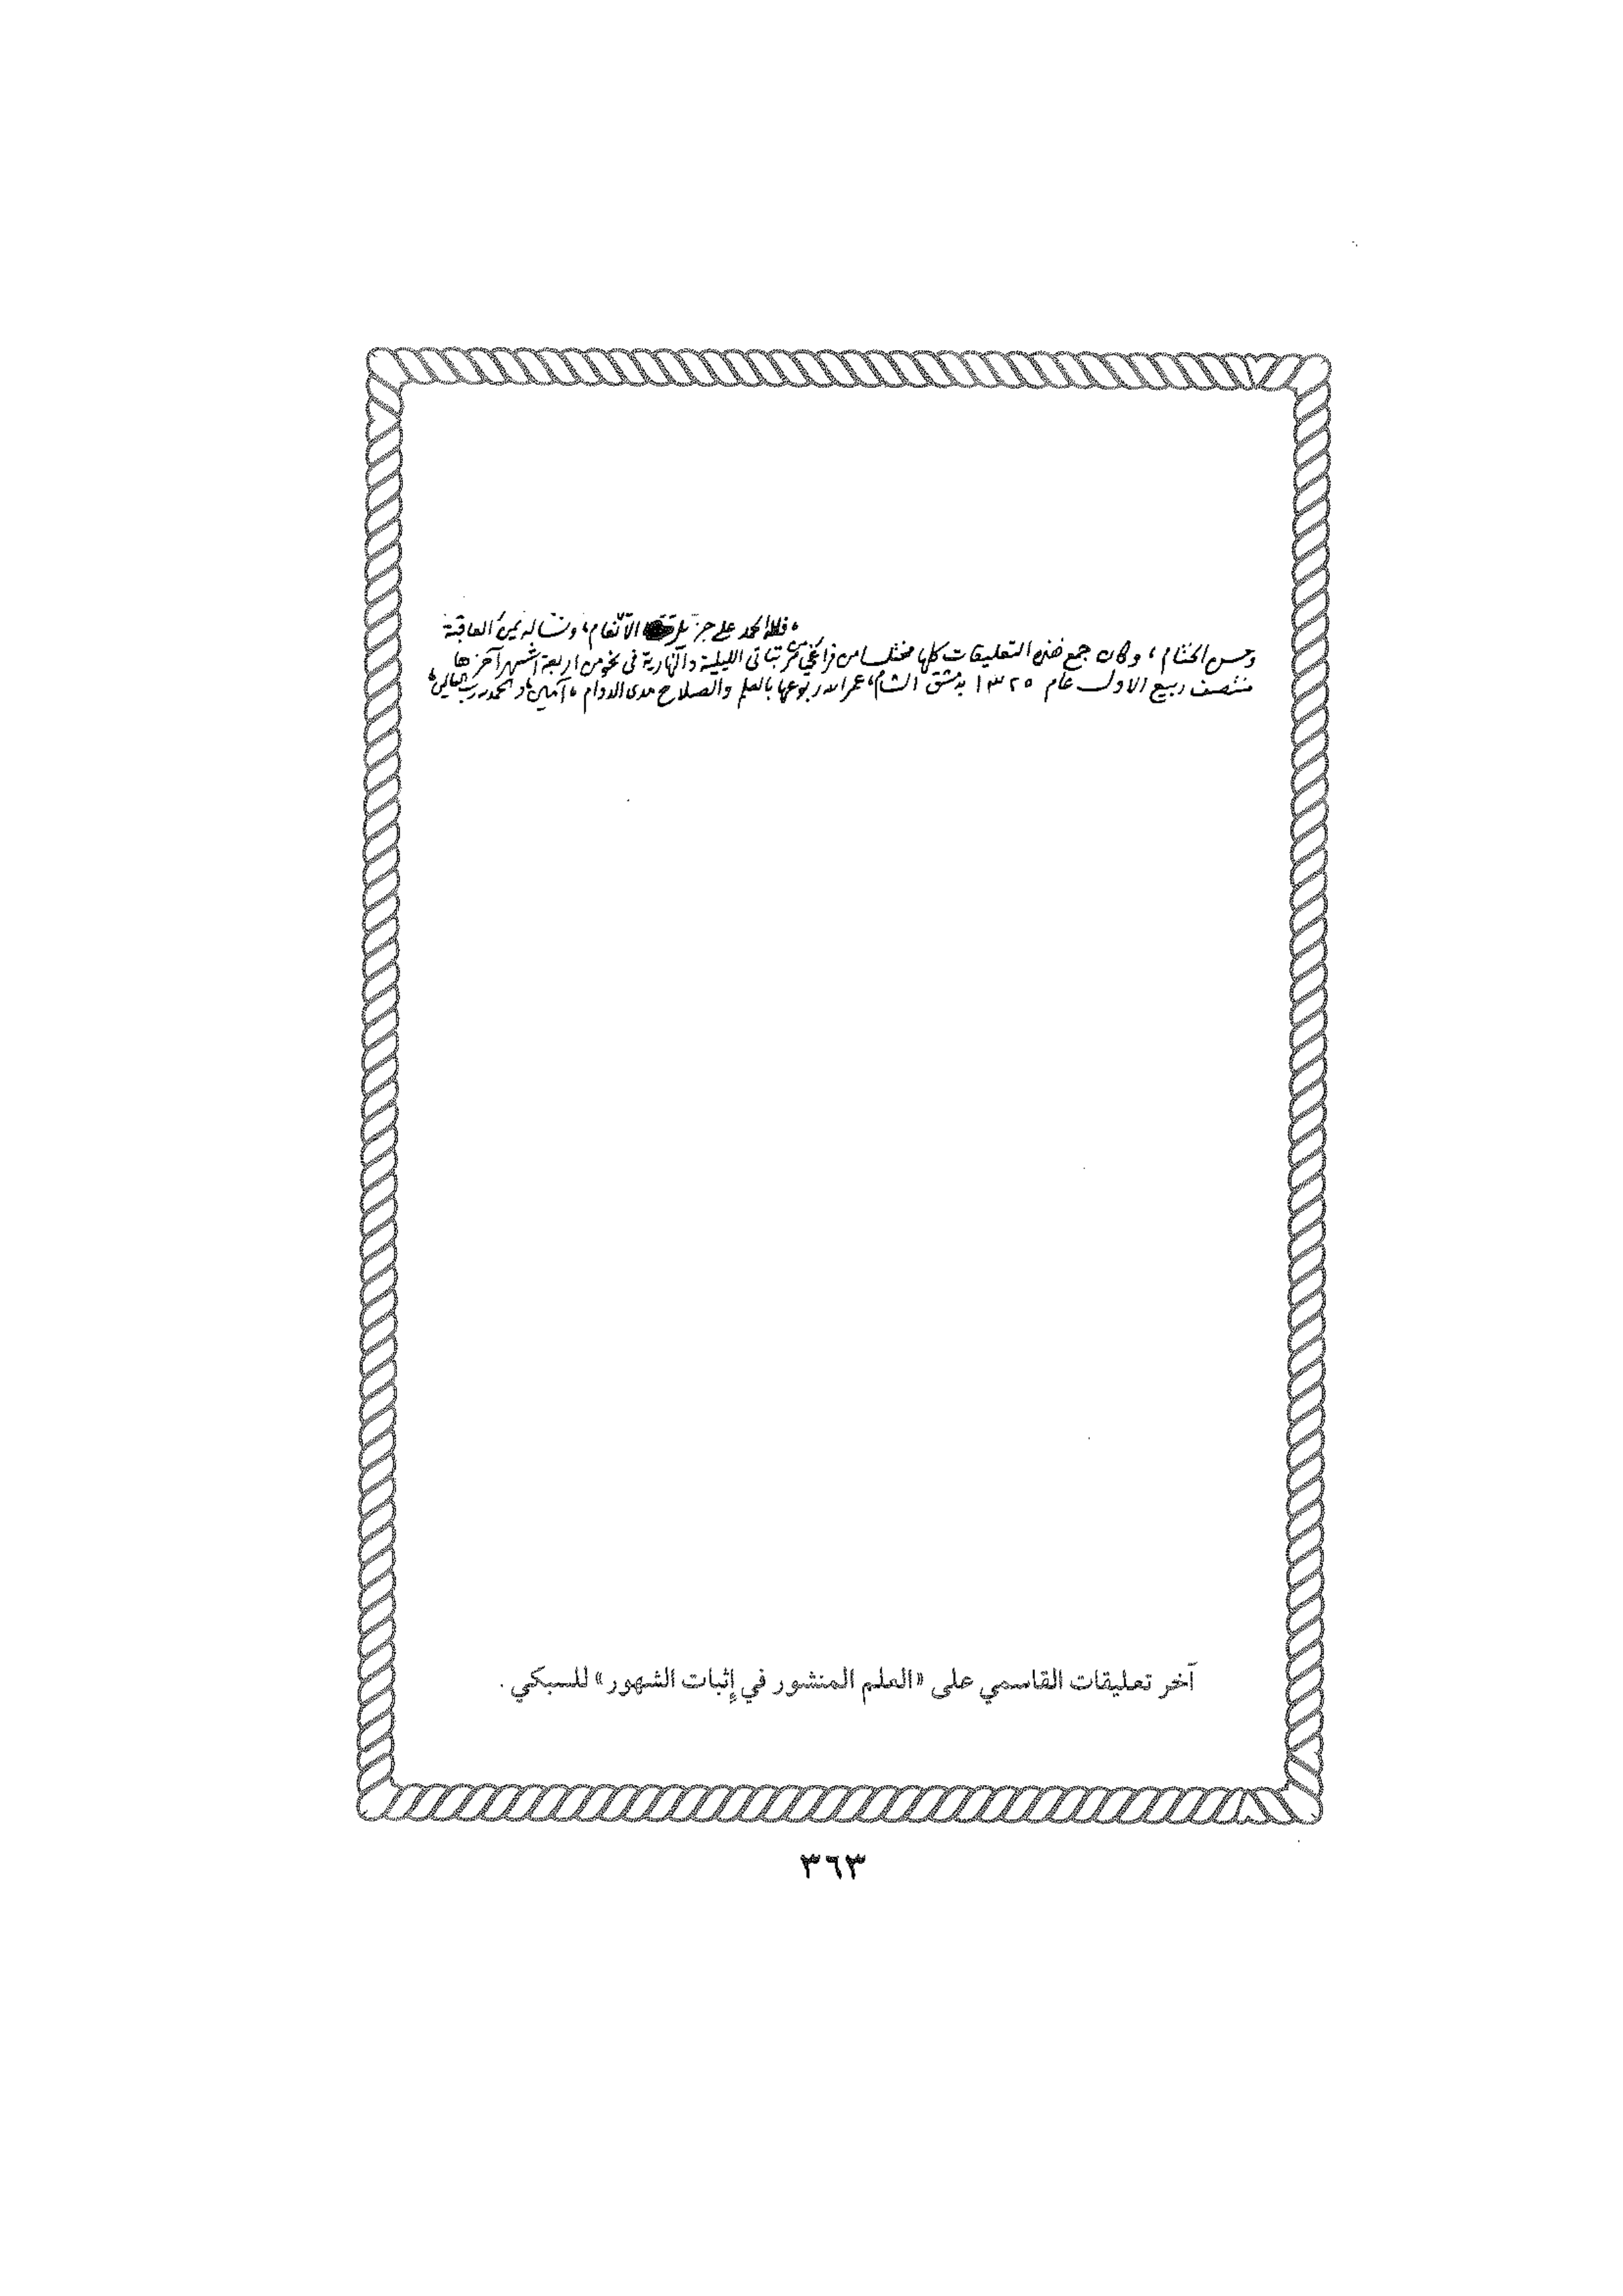 ، فلله الحمد على جزيل الانعام، ونسأله يمن العاقبة
وحسن الختام ، وكان جمع هذه التعليقات كلها مختلسا من فراغي من مرتباتي الليلية والنهارية في نحو من اربعة اشهر آخرها
منتصف ربيع الاول عام ١٣٢٥ بدمشق الشام، عمر الله ربوعها بالعلم والصلاح مدى الدوام ، آمين، والحمد لله رب العالمين،
آخر تعليقات القاسمي على «العلم المنشور في إثبات الشهور» للسبكي .
٣٦٣